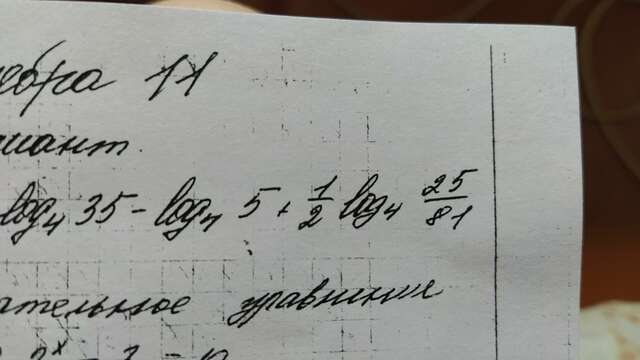 ебра 11
иант.
log₄ 35 - log₄ 5 + 1/2 log₄ 25/81
ательное уравнения